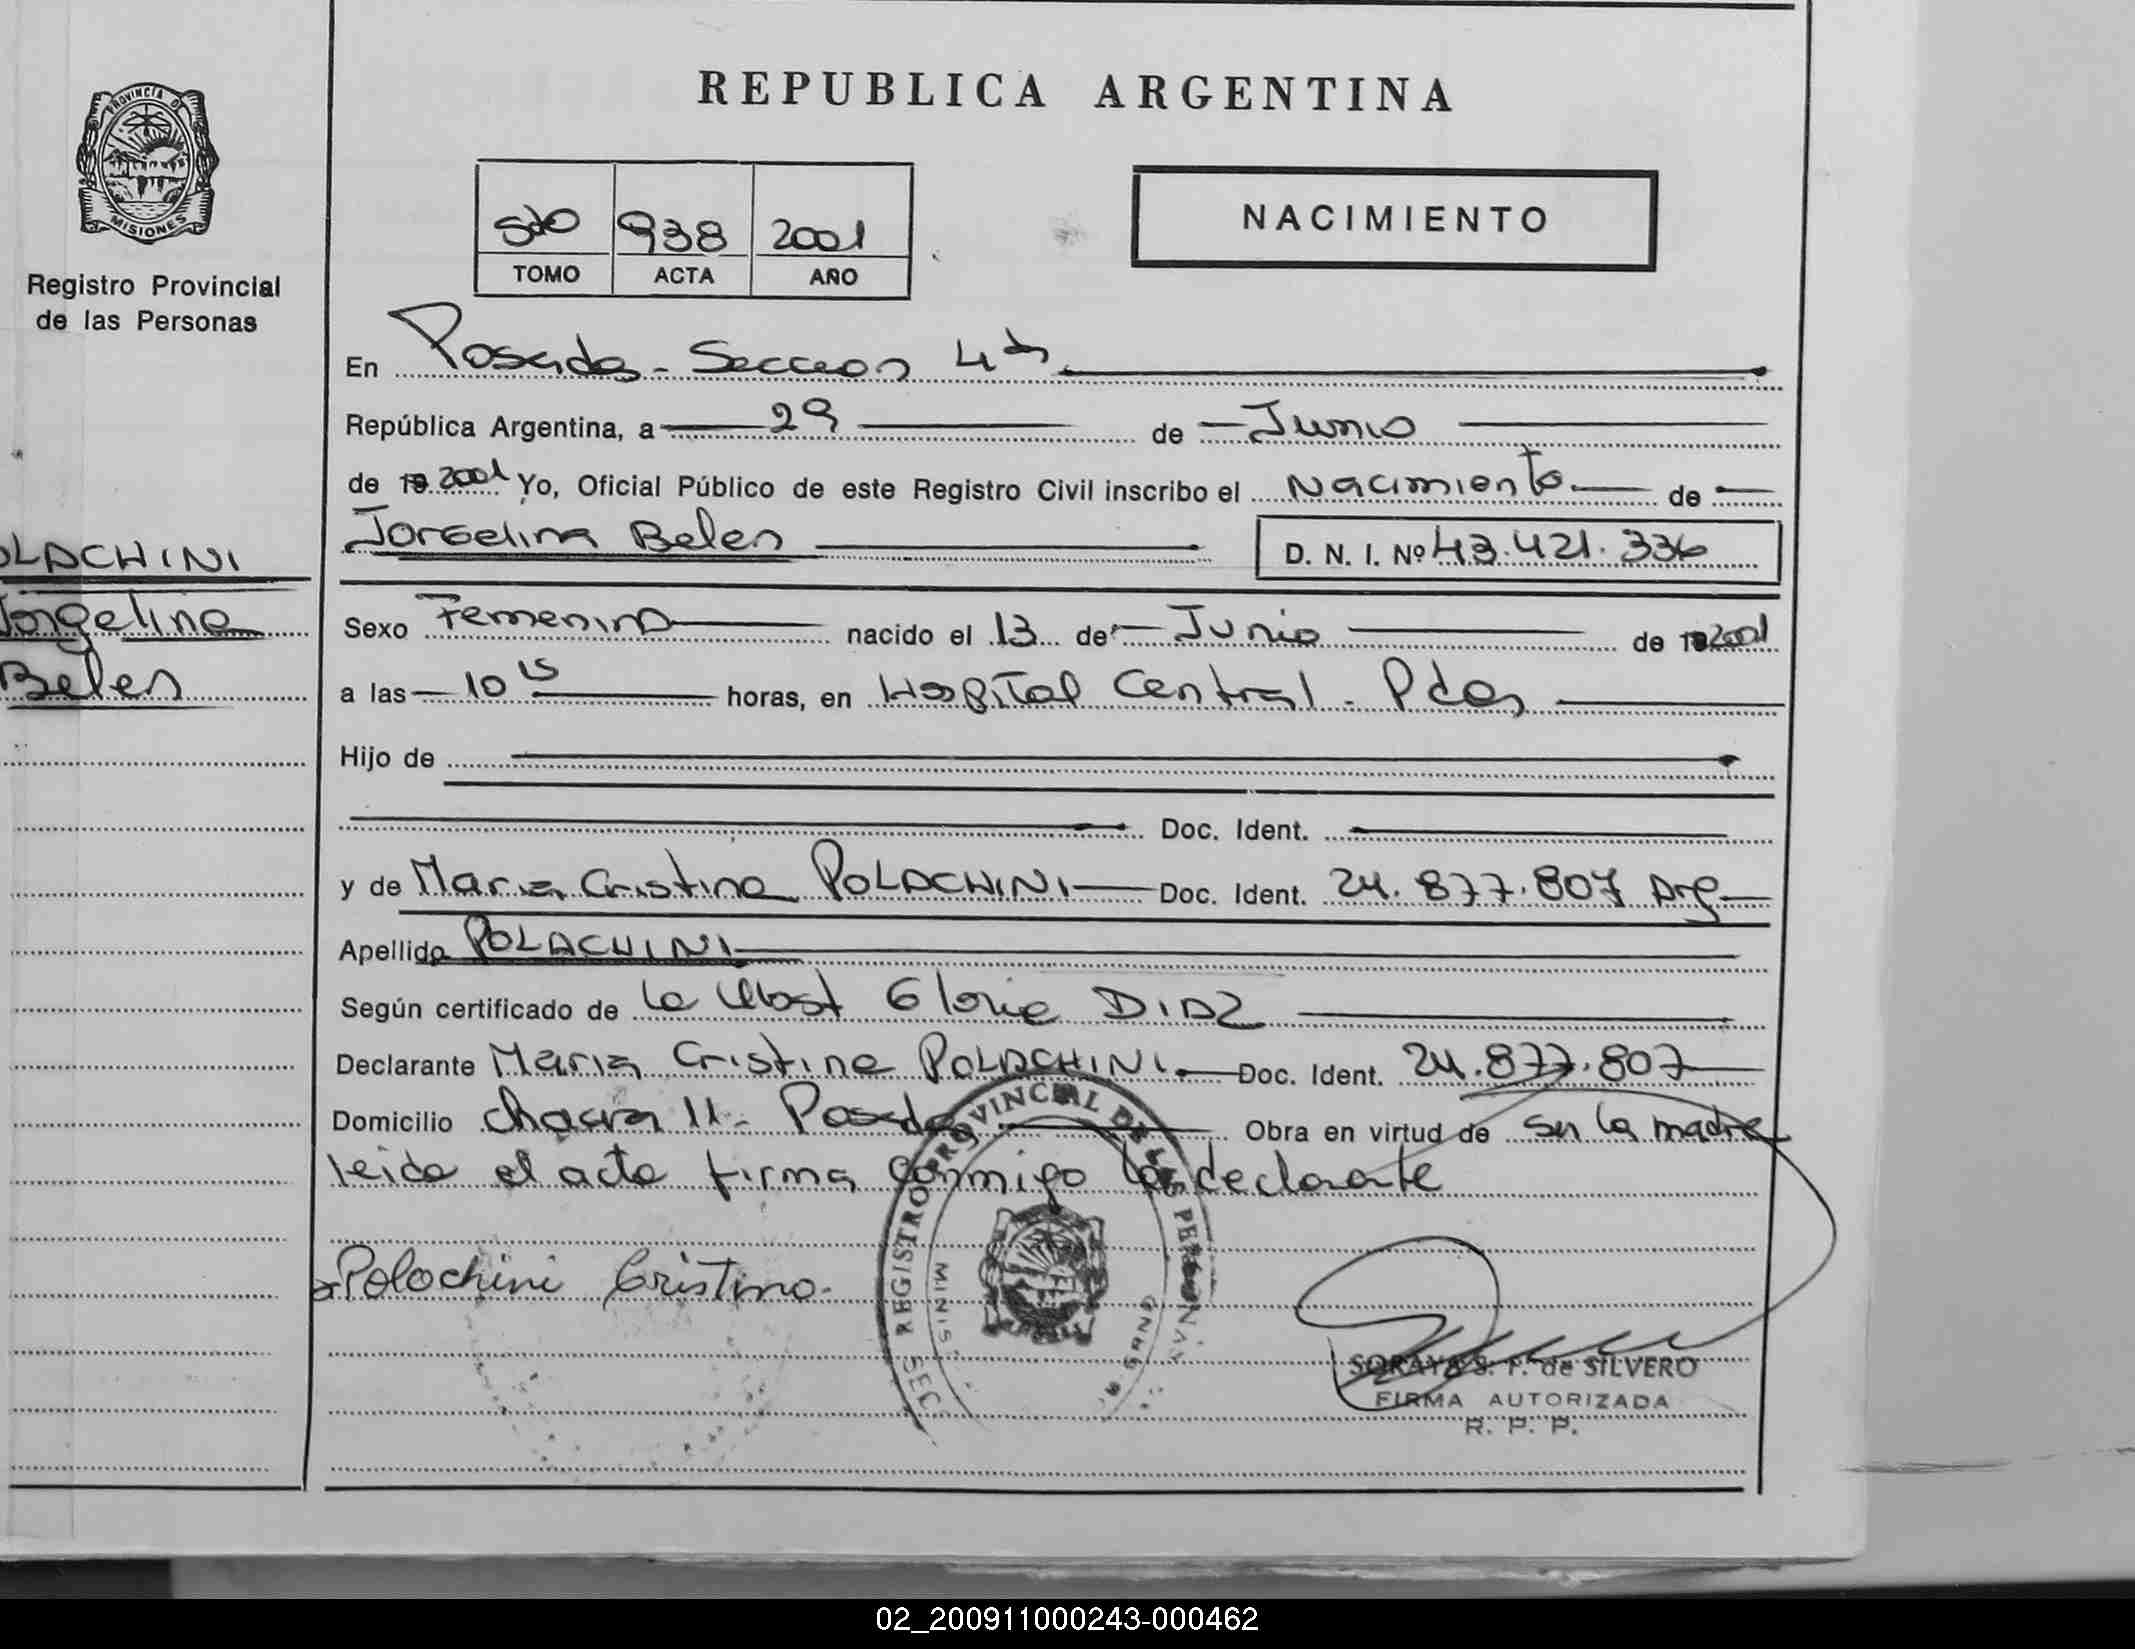 REPUBLICA ARGENTINA
PROVINCIA D
MISIONES
Registro Provincial
de las Personas
5to 938 2001
TOMO ACTA AÑO
NACIMIENTO
En Posadas - Seccion 4ta
República Argentina, a 29 de Junio
de 19 2001 Yo, Oficial Público de este Registro Civil inscribo el Nacimiento de
Jorgelina Belen D. N. I. Nº 43.421.336
OLACHINI
Jorgelina
Belen
Sexo Femenino nacido el 13 de Junio de 19 2001
a las 10 15 horas, en Hospital Central - Pdas
Hijo de
Doc. Ident.
y de Maria Cristina POLACHINI Doc. Ident. 24.877.807 Arg
Apellido POLACHINI
Según certificado de la Obst Gloria DIAZ
Declarante Maria Cristina POLACHINI. Doc. Ident. 24.877.807
Domicilio chacra 11 - Posadas Obra en virtud de ser la madre
leida el acta firma conmigo la declarante
Polachini Cristina.
REGISTRO PROVINCIAL DE LAS PERSONAS
MINIS
SEC
SORAYA S. P. de SILVERO
FIRMA AUTORIZADA
R. P. P.
02_200911000243-000462